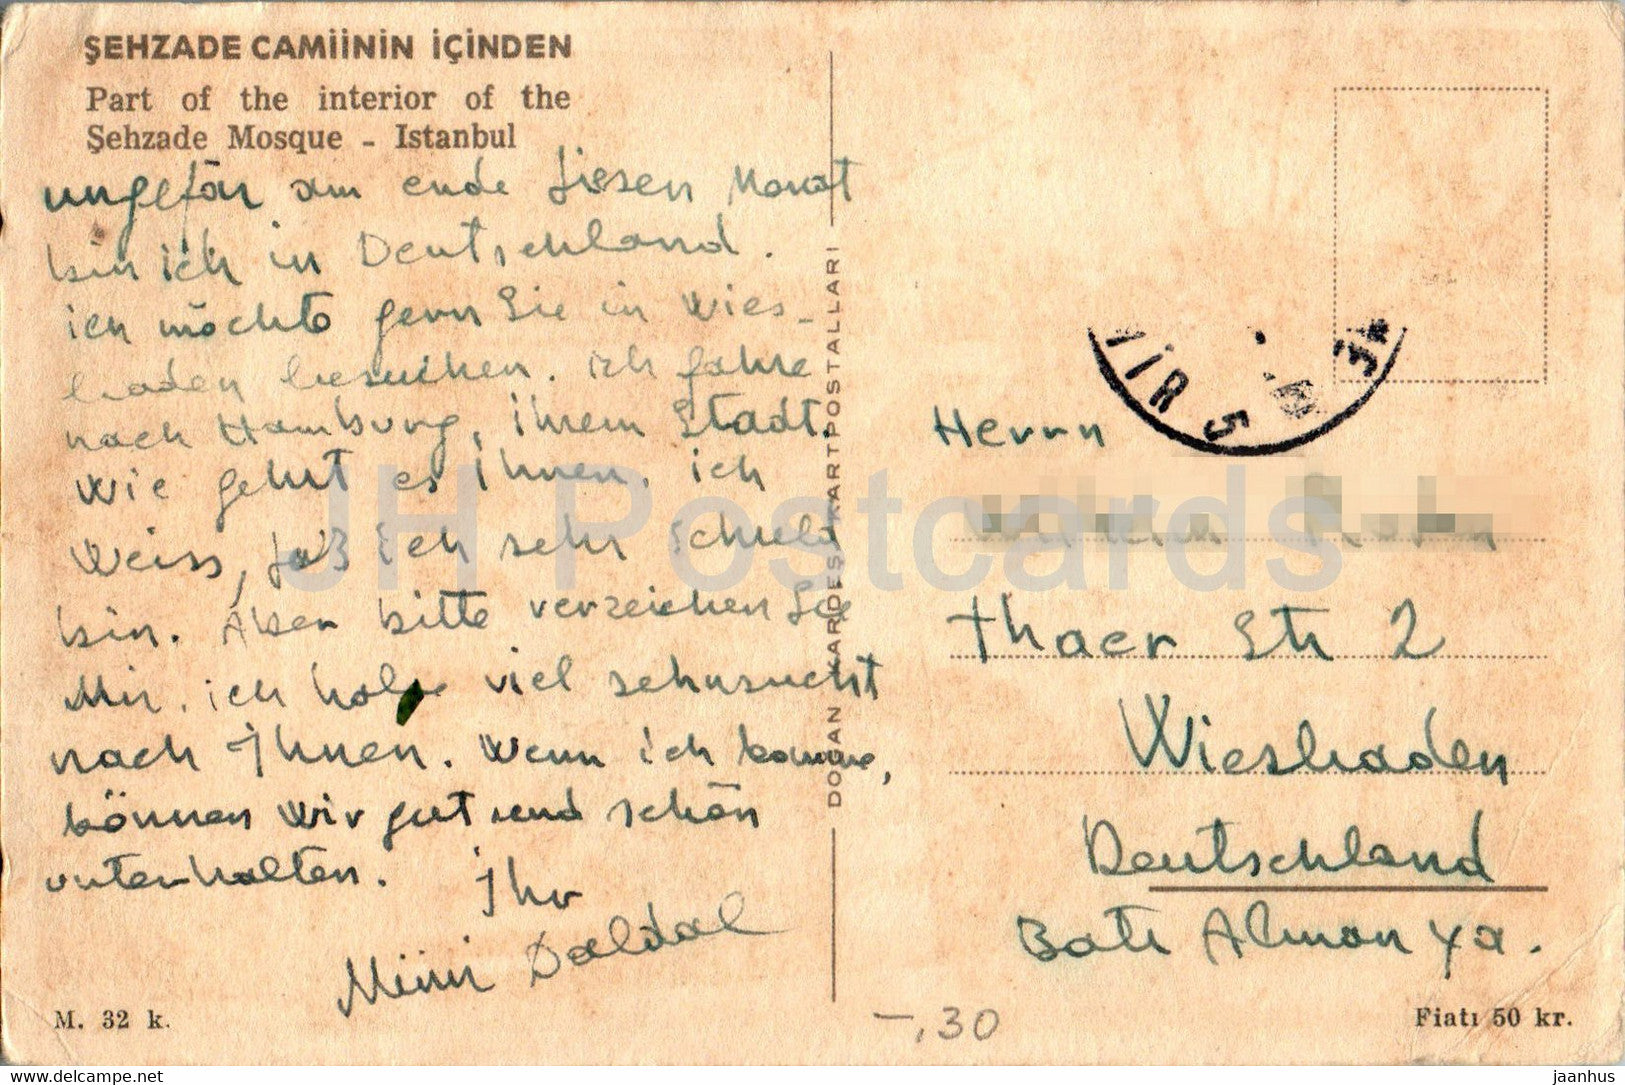 ŞEHZADE CAMİİNİN İÇİNDEN
Part of the interior of the
Şehzade Mosque - Istanbul
ungefär am ende diesen Monat
bin ich in Deutschland.
ich möchte gern Sie in Wies-
baden besuchen. ich fahre
nach Hamburg, ihrem Stadt.
Wie gehut es ihnen. ich
Weiss, daß ich sehr schuld
bin. Aber bitte verzeichen Sie
Mir. ich habe viel sehnsucht
nach Ihnen. Wenn ich komme,
können wir gut und schön
unterhalten. Ihr
Daldal
M. 32 k.
DOĞAN KARDEŞ KARTPOSTALLARI
İR 5
Herrn
Thaer Str 2
Wiesbaden
Deutschland
Batı Almanya.
-.30
Fiatı 50 kr.
JH Postcards
www.delcampe.net
jaanhus